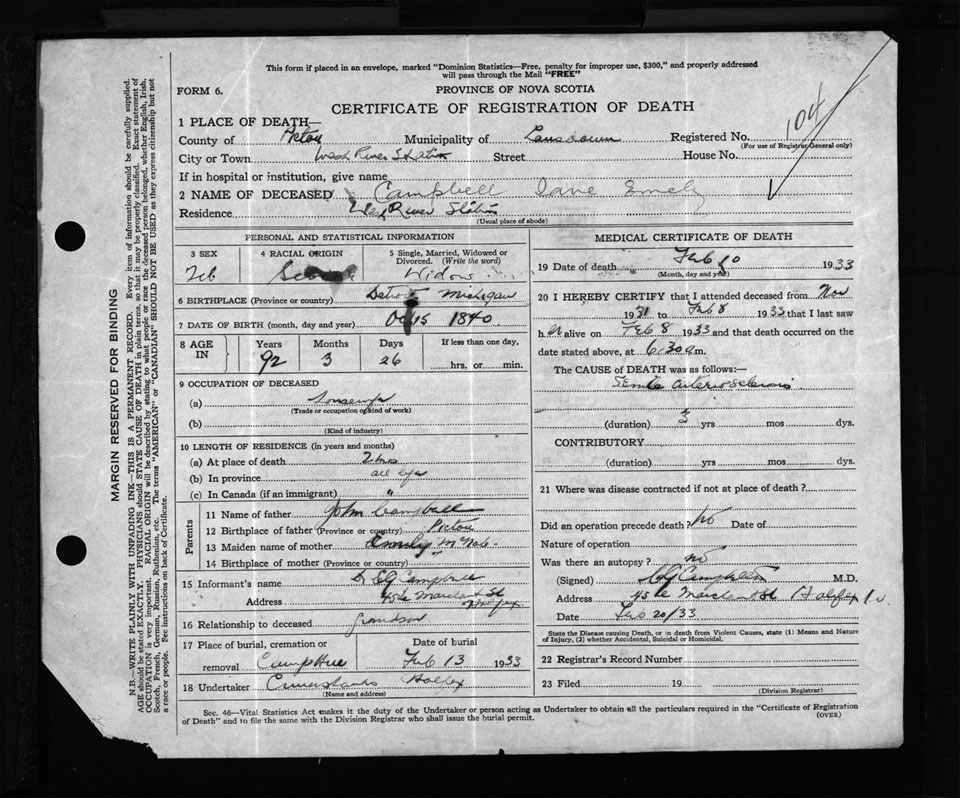 This form if placed in an envelope, marked "Dominion Statistics—Free, penalty for improper use, $300," and properly addressed
will pass through the Mail "FREE"
FORM 6.
PROVINCE OF NOVA SCOTIA
CERTIFICATE OF REGISTRATION OF DEATH
1 PLACE OF DEATH—
County of Pictou Municipality of Lansdowne Registered No. 104
(For use of Registrar General only)
City or Town West River Station Street House No.
If in hospital or institution, give name
2 NAME OF DECEASED Campbell Jane Emely
Residence West River Station
(Usual place of abode)
PERSONAL AND STATISTICAL INFORMATION
3 SEX
4 RACIAL ORIGIN
5 Single, Married, Widowed or
Divorced. (Write the word)
Widow
6 BIRTHPLACE (Province or country) Detroit Michigan
7 DATE OF BIRTH (month, day and year) Oct 15 1840
8 AGE IN
Years Months Days If less than one day,
92 3 26 hrs. or min.
9 OCCUPATION OF DECEASED
(a) Housewife
(Trade or occupation or kind of work)
(b)
(Kind of industry)
10 LENGTH OF RESIDENCE (in years and months)
(a) At place of death
(b) In province all life
(c) In Canada (if an immigrant) "
Parents
11 Name of father John Campbell
12 Birthplace of father (Province or country) Pictou
13 Maiden name of mother Emily McNab
14 Birthplace of mother (Province or country) "
15 Informant's name Dr CG Campbell
Address 45 Le Marchant St
Halifax
16 Relationship to deceased grandson
17 Place of burial, cremation or
removal
Date of burial
Feb 13 1933
18 Undertaker Halifax
(Name and address)
MEDICAL CERTIFICATE OF DEATH
19 Date of death Feb 10 1933
(Month, day and year)
20 I HEREBY CERTIFY that I attended deceased from Nov
1931 to Feb 8 1933 that I last saw
h er alive on Feb 8 1933 and that death occurred on the
date stated above, at 6.30 a m.
The CAUSE of DEATH was as follows:—
Senile arteriosclerosis
(duration) 3 yrs mos dys.
CONTRIBUTORY
(duration) yrs mos dys.
21 Where was disease contracted if not at place of death?
Did an operation precede death? No Date of
Nature of operation
Was there an autopsy? no
(Signed) CG Campbell M.D.
Address 45 Le Marchant St Halifax
Date Feb 20/33
State the Disease causing Death, or in death from Violent Causes, state (1) Means and Nature
of Injury, (2) whether Accidental, Suicidal or Homicidal.
22 Registrar's Record Number
23 Filed 19
(Division Registrar)
Sec. 46—Vital Statistics Act makes it the duty of the Undertaker or person acting as Undertaker to obtain all the particulars required in the "Certificate of Registration
of Death" and to file the same with the Division Registrar who shall issue the burial permit.
(OVER)
MARGIN RESERVED FOR BINDING
N.B.—WRITE PLAINLY WITH UNFADING INK—THIS IS A PERMANENT RECORD. Every item of information should be carefully supplied.
AGE should be stated EXACTLY. PHYSICIANS should STATE CAUSE OF DEATH in plain terms, so that it may be properly classified. Exact statement of
OCCUPATION is very important. RACIAL ORIGIN will be described by stating to what people or race the deceased person belonged, whether English, Irish,
Scotch, French, German, Russian, Ruthenian, etc. The terms "AMERICAN" or "CANADIAN" SHOULD NOT BE USED as they express citizenship but not
a race or people. See Instructions on back of Certificate.